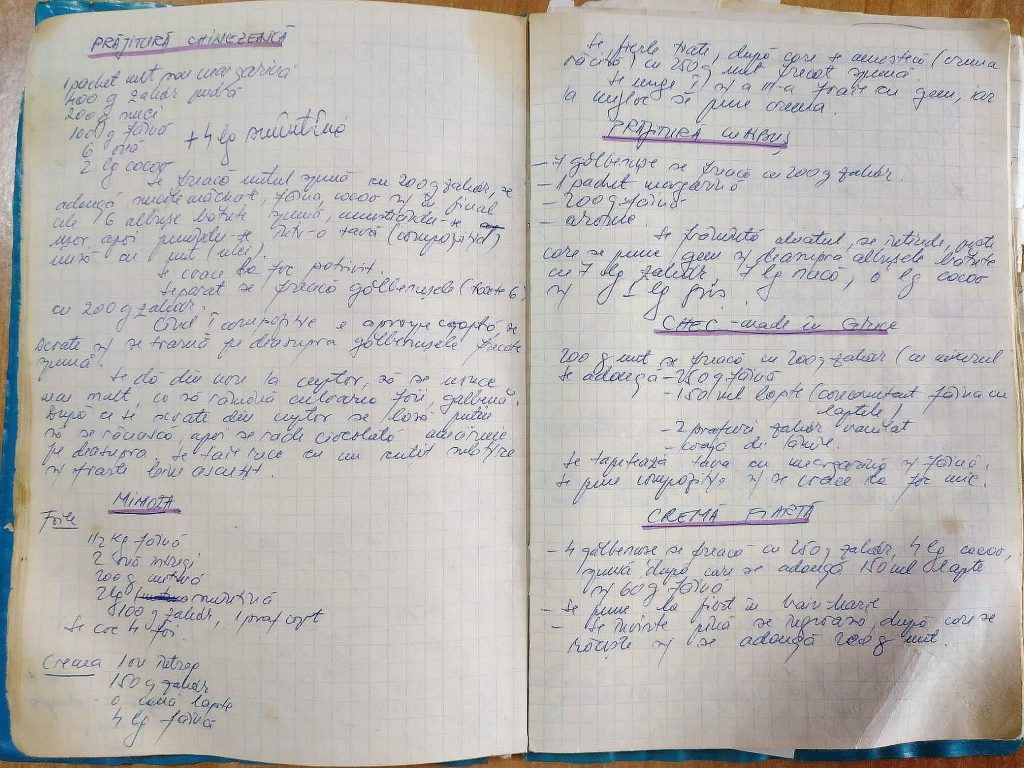 PRĂJITURĂ CHINEZEASCĂ
1 pachet unt sau margarină
400 g zahăr pudră
200 g nuci
100 g făină
6 ouă + 4 lg smîntînă
2 lg cacao
Se freacă untul spumă cu 200 g zahăr, se
adaugă nucile măcinate, făina, cacao și în final
cele 6 albușe bătute spumă, amestecîndu-se
ușor, apoi punîndu-se într-o tavă (compoziția)
unsă cu unt (ulei).
Se coace la foc potrivit.
Separat se freacă gălbenușele (toate 6)
cu 200 g zahăr.
Cînd I compoziție e aproape coaptă se
scoate și se toarnă pe deasupra gălbenușele frecate
spumă.
Se dă din nou la cuptor, să se usuce
mai mult, ca să rămînă culoarea foii, galbenă.
După ce se scoate din cuptor se lasă puțin
să se răcească, apoi se rade ciocolată amăruie
pe deasupra. Se taie rece cu un cuțit subțire
și foarte bine ascuțit.
MIMOZA
Foile
1/2 kg făină
2 ouă întregi
200 g untură
2 lg smîntînă
100 g zahăr, 1 praf copt
Se coc 4 foi.
Crema 1 ou întreg
150 g zahăr
o cană lapte
4 lg făină
Se fierb toate, după care se amestecă (crema
răcită) cu 250 g unt frecat spumă.
Se unge I și a III-a foaie cu gem, iar
la mijloc se pune crema.
PRĂJITURĂ CUMBUȘ
- 7 gălbenușe se freacă cu 200 g zahăr.
- 1 pachet margarină
- 200 g făină
- arome.
Se frămîntă aluatul, se întinde, peste
care se pune gem și deasupra albușele bătute
cu 7 lg zahăr, 7 lg nucă, o lg cacao
și 1 lg griș.
CHEC - made in Grece
200 g unt se freacă cu 200 g zahăr (cu mixerul
Se adaugă - 250 g făină
- 150 ml lapte (concomitent făina cu
laptele)
- 2 prafuri zahăr vanilat
- coajă de lămîie.
Se tapetează tava cu margarină și făină.
Se pune compoziția și se coace la foc mic.
CREMĂ FIARTĂ
- 4 gălbenușe se freacă cu 250 g zahăr, 4 lg cacao,
spumă după care se adaugă 150 ml lapte
și 60 g făină
- Se pune la fiert în bain-marie
- Se învîrte pînă se îngroașă, după care se
răcește și se adaugă 200 g unt.